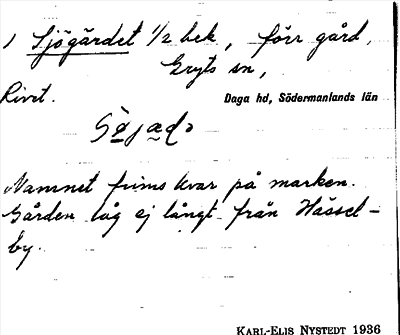 1 Sjögärdet 1/2 bek, förr gård,
Gryts sn,
Rivet.
Daga hd, Södermanlands län
Namnet finns kvar på marken.
Gården låg ej långt från Hässel-
by.
KARL-ELIS NYSTEDT 1936